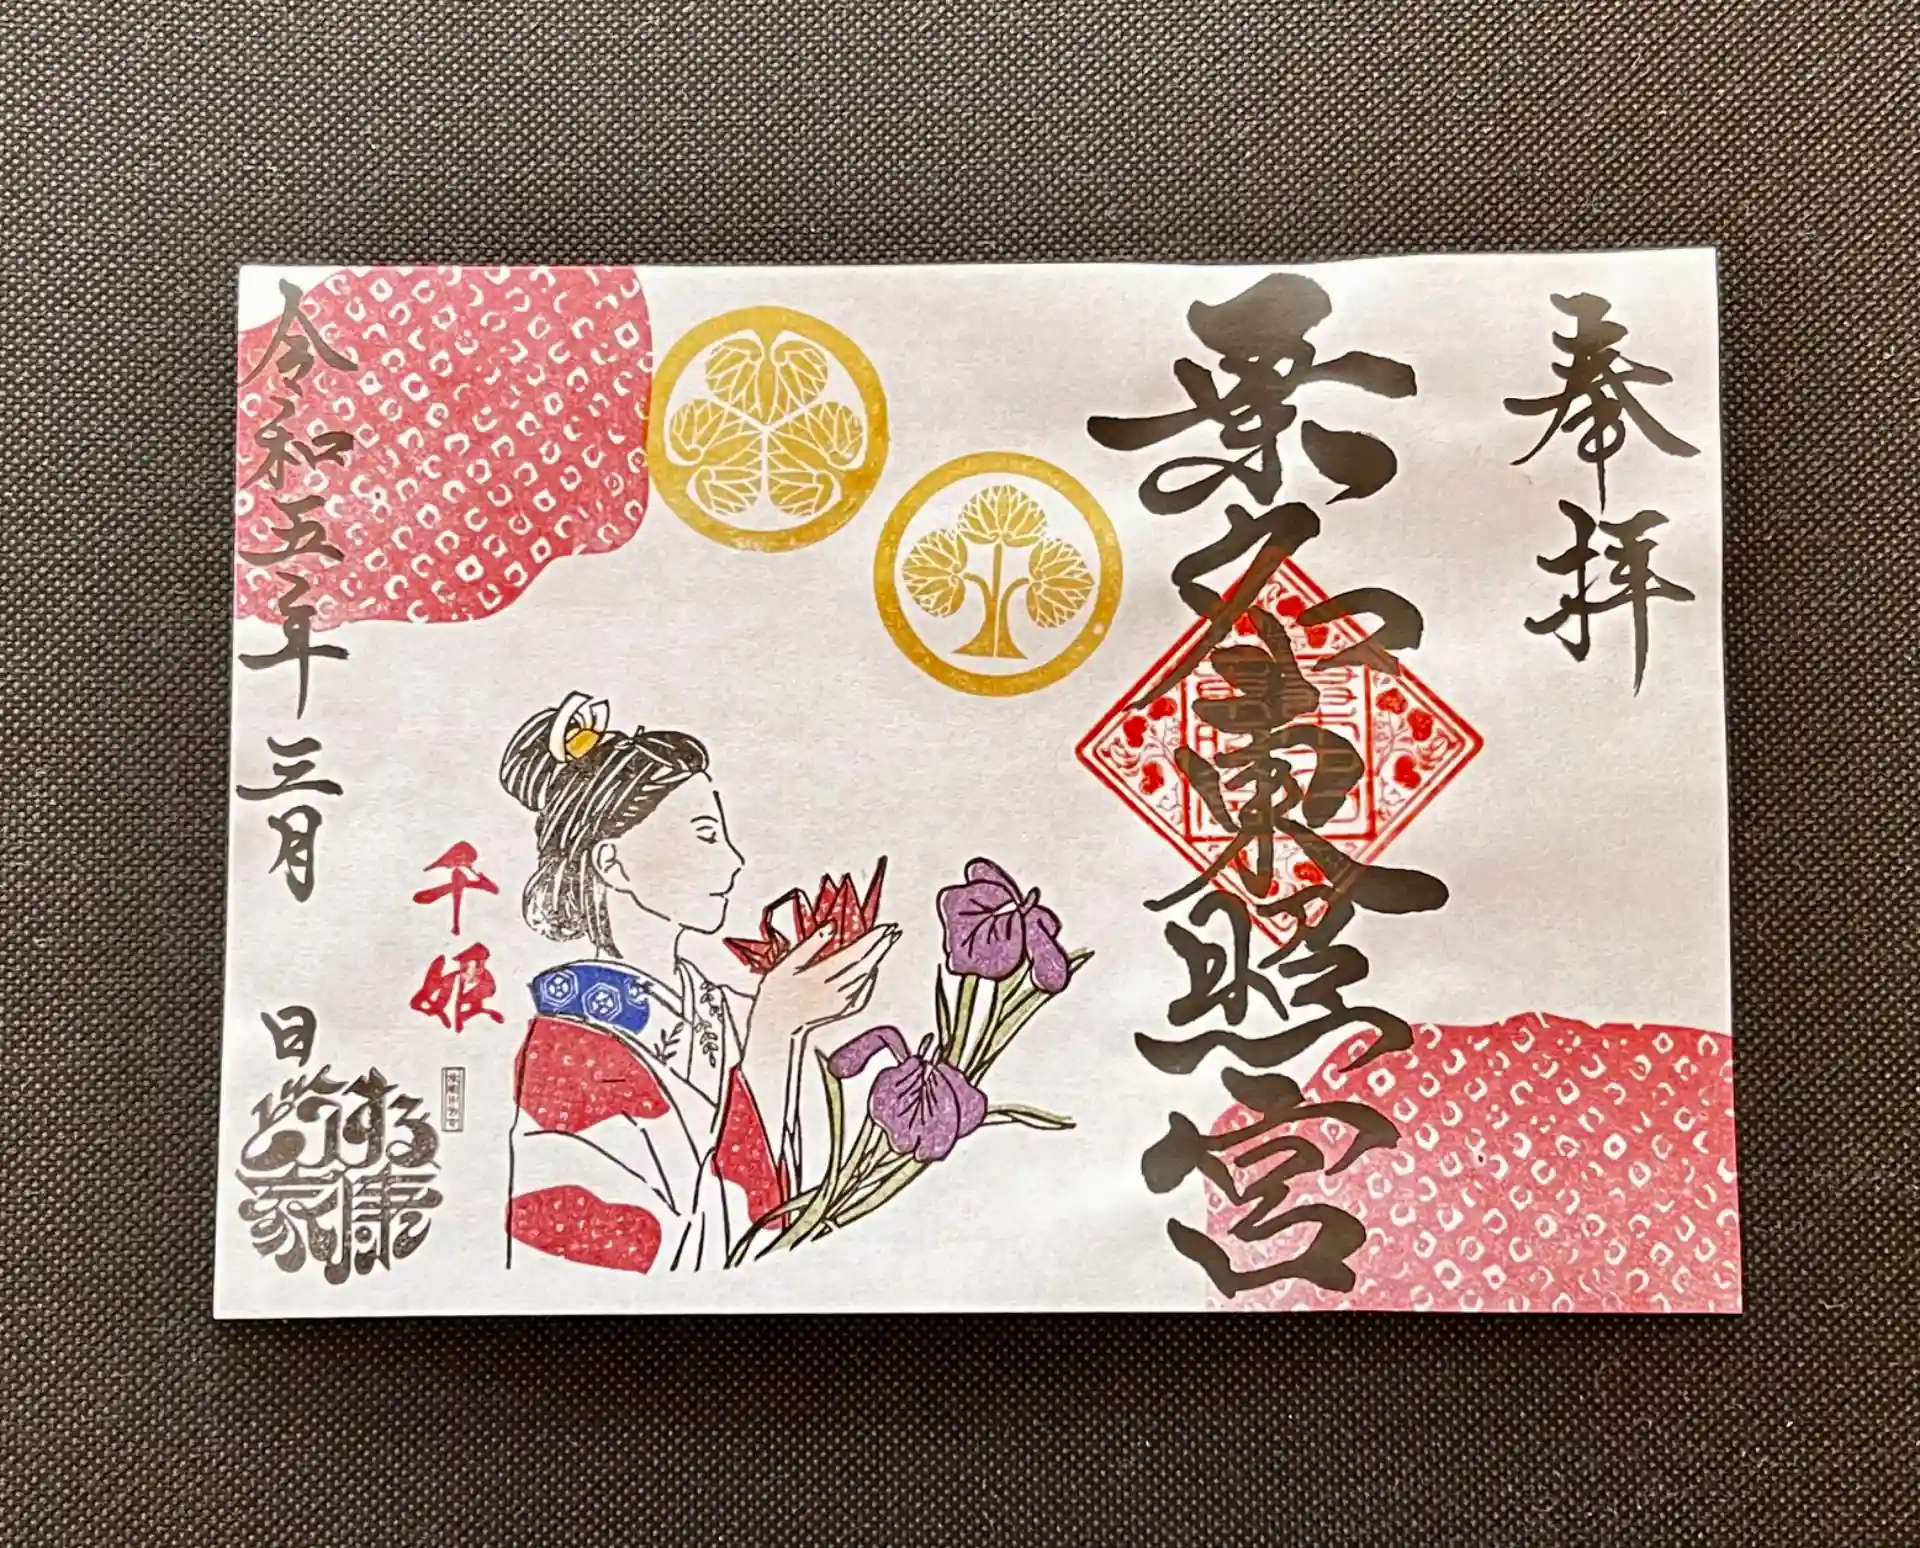 奉拝
桑名東照宮
千姫
令和五年 三月 日
どうする
家康